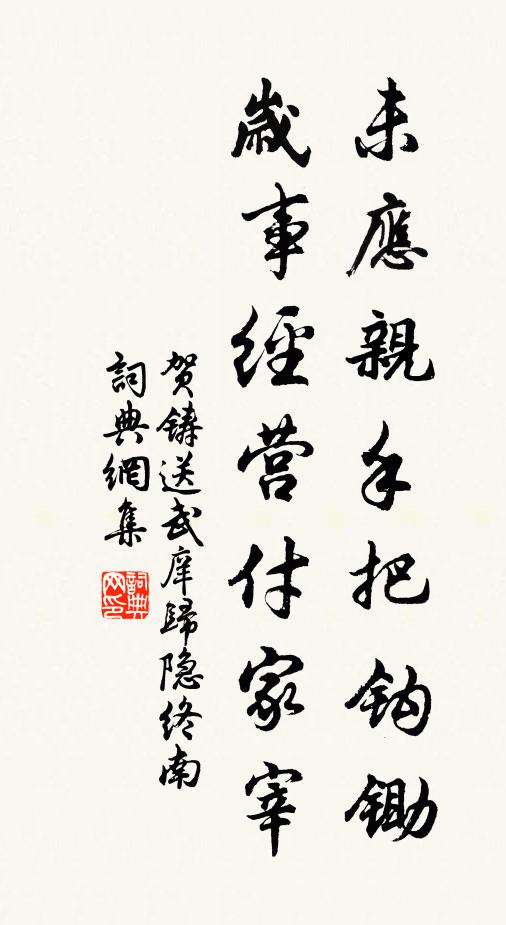 未應親手把鈎鋤
歲事經营付家宰
贺鑄送武庠歸隐终南
詞典網集
詞典网印